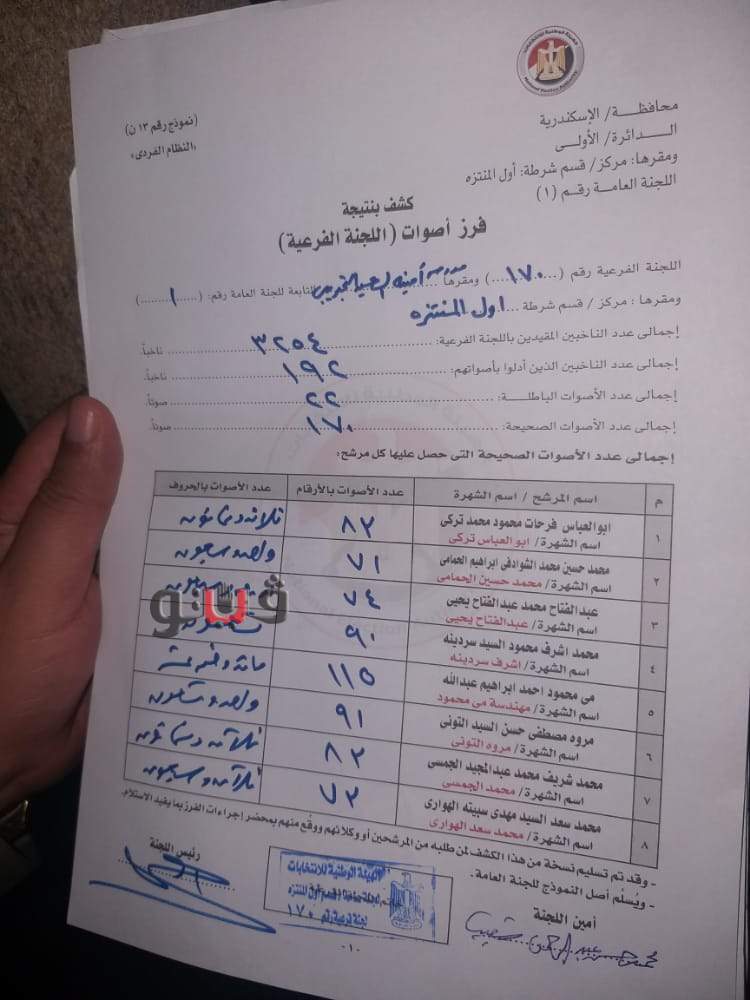 محافظـــة/ الإسكندرية
الـــدائرة/ الأولى
ومقرها: مركز/ قسم شرطة: أول المنتزه
اللجنة العامة رقـم (١)
(نموذج رقم ١٣ ن)
«النظام الفردى»
كشف بنتيجة
فرز أصوات (اللجنة الفرعية)
اللجنة الفرعية رقم (...١٧٠...) ومقرها مدرسة أمينة السعيد التابعة للجنة العامة رقم: (...١...)
ومقرها : مركز / قسم شرطة ...اول المنتزه
إجمالى عدد الناخبين المقيدين باللجنة الفرعية: ٣٢٥٤ ناخباً.
إجمالى عدد الناخبين الذين أدلوا بأصواتهم: ١٩٢ ناخباً.
إجمالى عدد الأصوات الباطلـــة : ٢٢ صوتاً.
إجمالى عدد الأصوات الصحيحة: ١٧٠ صوتاً.
إجمالى عدد الأصوات الصحيحة التى حصل عليها كل مرشح:
م اسم المرشح / اسم الشهرة عدد الأصوات بالأرقام عدد الأصوات بالحروف
١ ابوالعباس فرحات محمود محمد تركى ٨٣ ثلاثة وثمانون
اسم الشهرة/ ابو العباس تركى
٢ محمد حسين محمد الشوادفى ابراهيم الحمامى ٧١ واحد وسبعون
اسم الشهرة/ محمد حسين الحمامى
٣ عبدالفتاح محمد عبدالفتاح يحيى ٧٤ وسبعون
اسم الشهرة/ عبدالفتاح يحيى
فيتو
٤ محمد اشرف محمود السيد سردينه ٩٠
اسم الشهرة/ اشرف سردينه
٥ مى محمود احمد ابراهيم عبدالله ١١٥ مائة وخمسة عشر
اسم الشهرة/ مهندسة مى محمود
٦ مروه مصطفى حسن السيد التونى ٩١ واحد وتسعون
اسم الشهرة/ مروه التونى
٧ محمد شريف محمد عبدالمجيد الجمسى ٨٣ ثلاثة وثمانون
اسم الشهرة/ محمد الجمسى
٨ محمد سعد السيد مهدى سبيته الهوارى ٧٣ ثلاثة وسبعون
اسم الشهرة/ محمد سعد الهوارى
- وقد تم تسليم نسخة من هذا الكشف لمن طلبه من المرشحين أو وكلائهم ووقع منهم بمحضر إجراءات الفرز بما يفيد الاستلام.
- ويُسلم أصل النموذج للجنة العامة.
أمين اللجنة
رئيس اللجنة
الهيئة الوطنية للانتخابات
قسم أول المنتزه
لجنة فرعية رقم ١٧٠
-١٠-